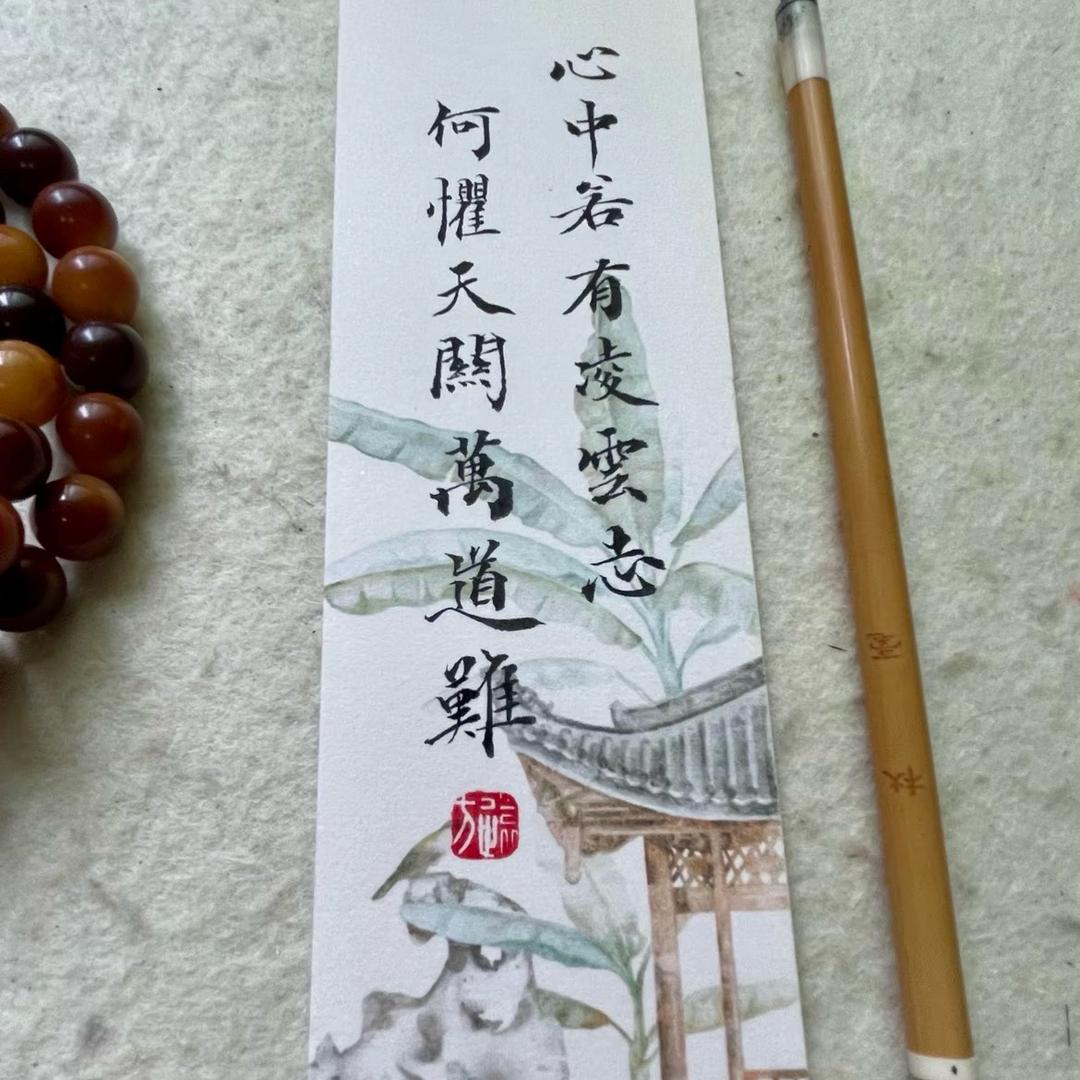 心中若有凌雲志
何懼天關萬道難